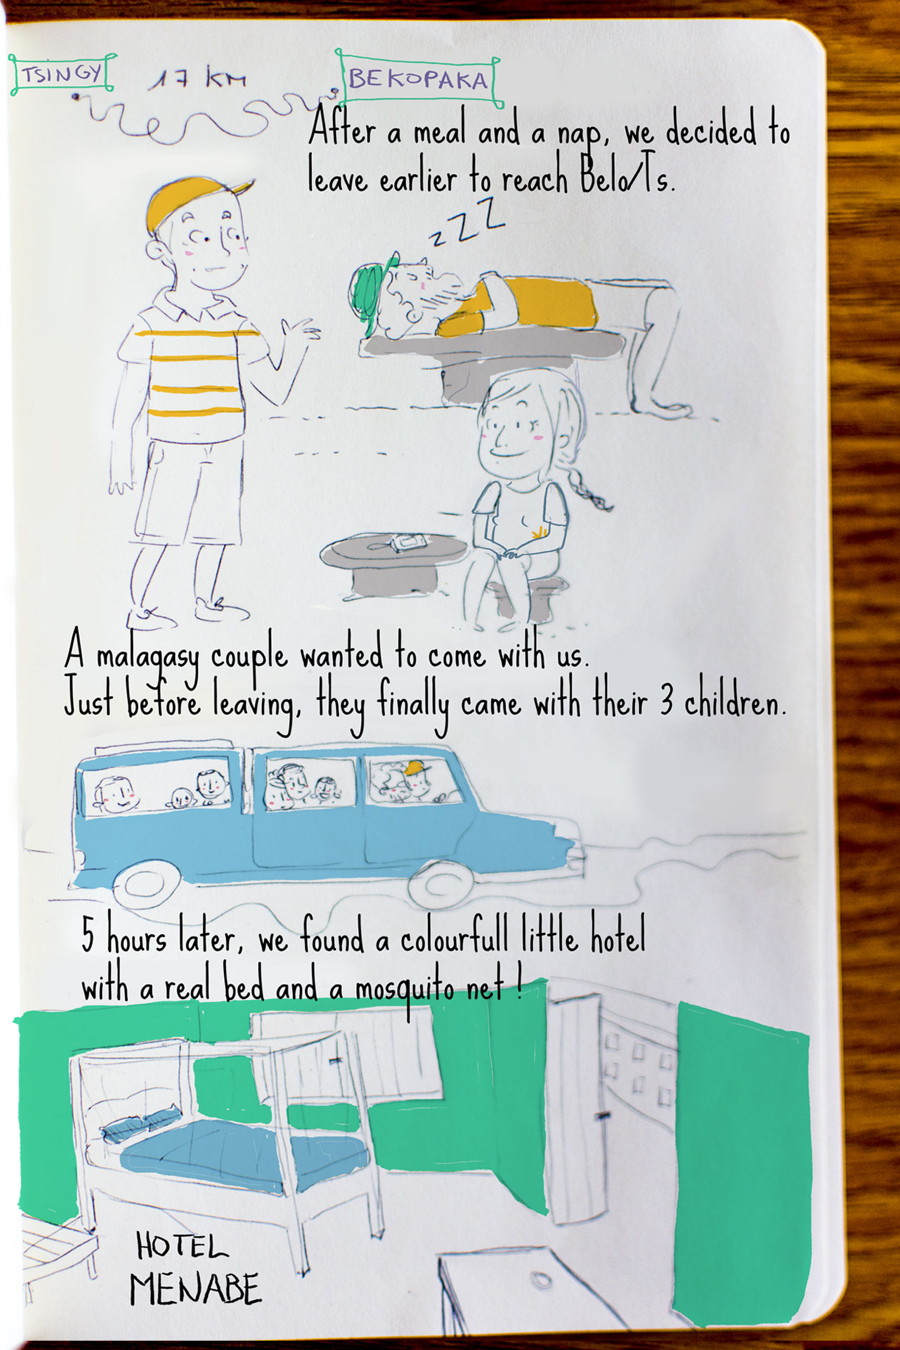 TSINGY 17 KM BEKOPAKA
After a meal and a nap, we decided to
leave earlier to reach Belo/Ts.
zZZ
A malagasy couple wanted to come with us.
Just before leaving, they finally came with their 3 children.
5 hours later, we found a colourfull little hotel
with a real bed and a mosquito net !
HOTEL
MENABE